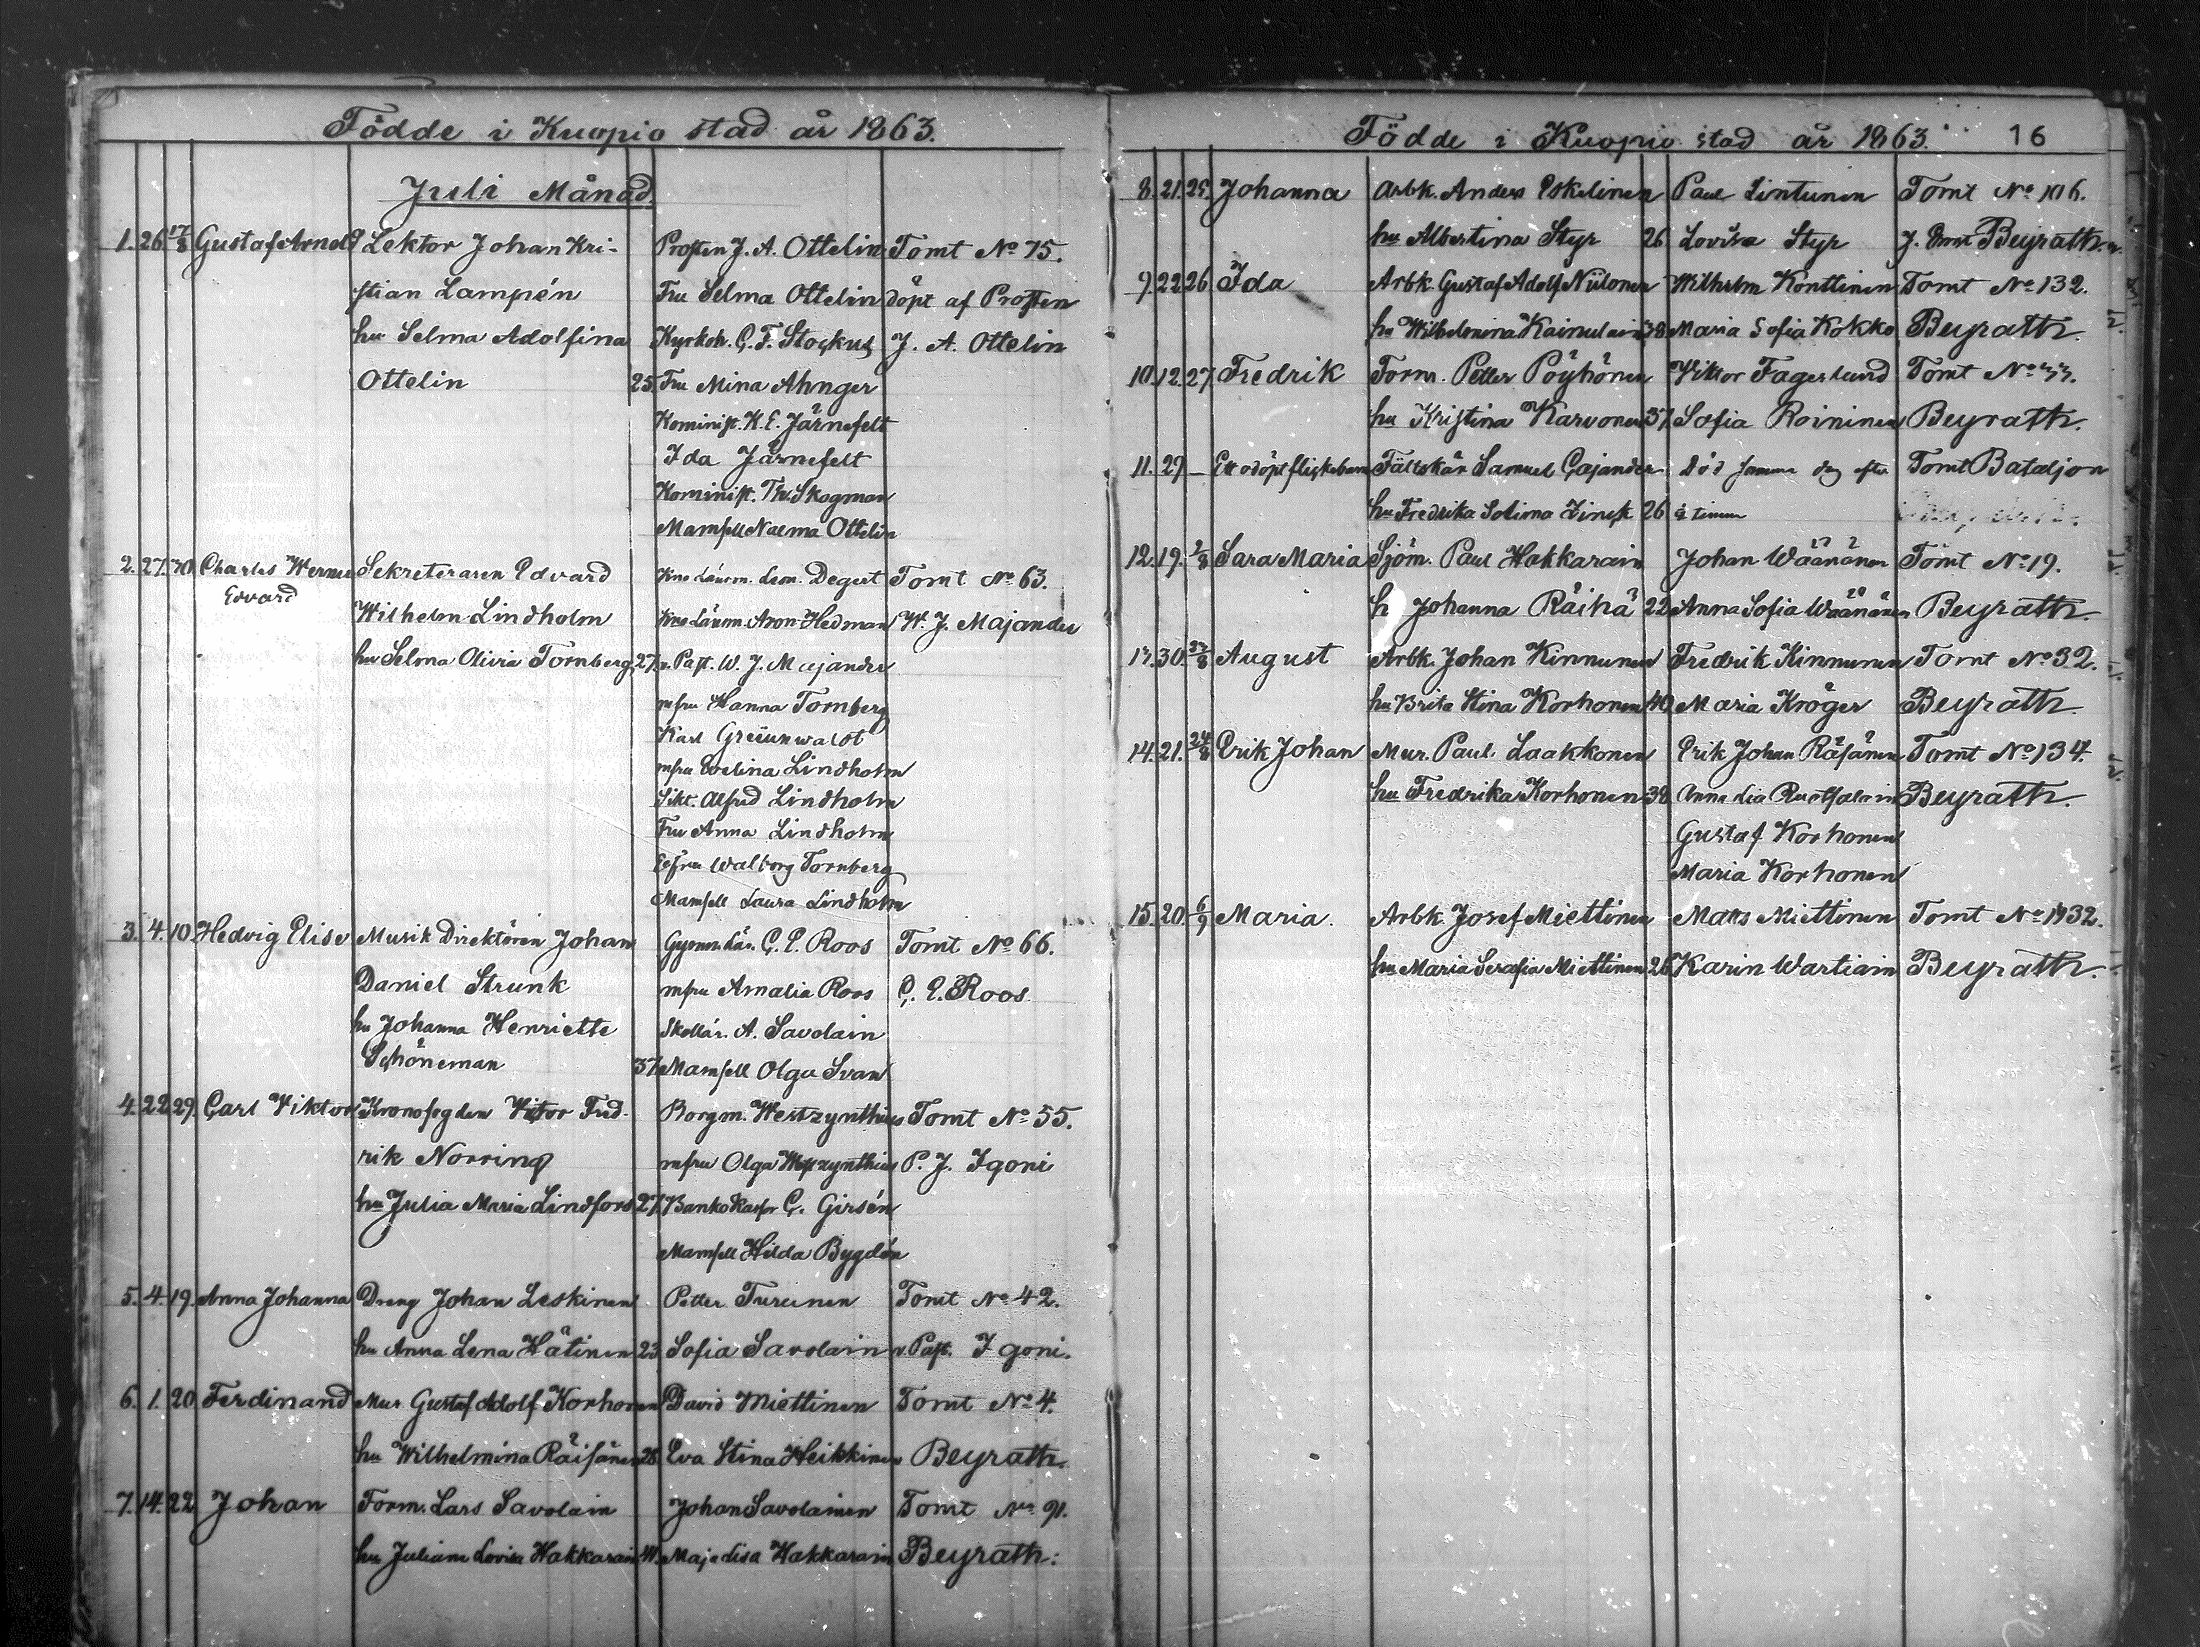 Födde i Kuopio stad år 1863.
Juli Månad
1. 26. 17/8 Gustaf Arnold Lektor Johan Kri- Prosten J. A. Ottelin Tomt No 75.
stian Lampén Fru Selma Ottelin döpt af Prosten
hu Selma Adolfina Kyrkoh. C. F. Stockus J. A. Ottelin
Ottelin 25 Fru Mina Ahnger
Kominist. K. E. Järnefelt
Ida Järnefelt
Kominist. Th. Skogman
Mamsell Naema Ottelin
2. 27. 30 Charles Werner Sekreteraren Edvard Kno Länsm. Leon. Degert Tomt No 63.
Edvard
Wilhelm Lindholm Kno Länsm. Aron Hedman W. J. Majander
hu Selma Olivia Tornberg 27. v. Past. W. J. Majander
mfru Hanna Tornberg
Karl Greünwaldt
mfru Evelina Lindholm
Sikt. Alfred Lindholm
Fru Anna Lindholm
Walborg Tornberg
Mamsell Laura Lindholm
3. 4. 10. Hedvig Elise Musik Direktören Johan Gymn. Lär. C. E. Roos Tomt No 66.
Daniel Strunk mfru Amalia Roos C. E. Roos
hu Johanna Henriette Skollär. A. Savolain
Schöneman 37. Mamsell Olga Svan
4. 22 29. Carl Viktor Kronofogden Viktor Fred- Borgm. Westzynthius Tomt No 55.
rik Norring mfru Olga Westzynthius P. J. Igoni
hu Julia Maria Lindfors 27. Banko Kassor C. Girsén
Mamsell Hilda Bygdén
5. 4. 19. Anna Johanna Dreng Johan Leskinen Petter Turunen Tomt No 42.
hu Anna Lena Hätinen 23 Sofia Savolain v. Past. Igoni.
6. 1. 20 Ferdinand Mur Gustaf Adolf Korhonen David Miettinen Tomt No 4.
hu Wilhelmina Räisänen 28 Eva Stina Heikkinen Beyrath.
7. 14. 22 Johan Form. Lars Savolain Johan Savolainen Tomt No 91.
hu Juliana Lovisa Hakkarain 41. Maja Lisa Hakkarain Beyrath.
Födde i Kuopio stad år 1863. 16
8. 21. 25. Johanna Arbk. Anders Eskelinen Paul Lintunen Tomt No 106.
hu Albertina Styr 26 Lovisa Styr Beyrath.
9. 22 26 Ida Arbk. Gustaf Adolf Niilonen Wilhelm Konttinen Tomt No 132.
hu Wilhelmina Kainulain 38 Maria Sofia Kokko Beyrath.
10. 12. 27. Fredrik Form. Petter Pöyhönen Viktor Fagerlund Tomt No 33.
hu Kristina Karvonen 37. Sofia Roininen Beyrath.
11. 29. — Ett odöpt flickebarn Fältskär Samuel Cajander Död samma dag efter Tomt Bataljon
hu Fredrika Solima Zinck 26 timme
12. 19. 2/8 Sara Maria Sjöm. Paul Hakkarain Johan Wäänänen Tomt No 19.
h Johanna Räihä 22 Anna Sofia Wäänänen Beyrath.
13. 30. August Arbk. Johan Kinnunen Fredrik Kinnunen Tomt No 32.
hu Brita Stina Korhonen 40 Maria Kröger Beyrath
14. 21. 24/8 Erik Johan Mur. Paul Laakkonen Erik Johan Räsänen Tomt No 134.
hu Fredrika Korhonen 38 Anna Lisa Beyrath.
Gustaf Korhonen
Maria Korhonen
15. 20. 6/9 Maria. Arbk. Josef Miettinen Matts Miettinen Tomt No 132.
hu Maria Serafia Miettinen 26 Karin Wartiain Beyrath.